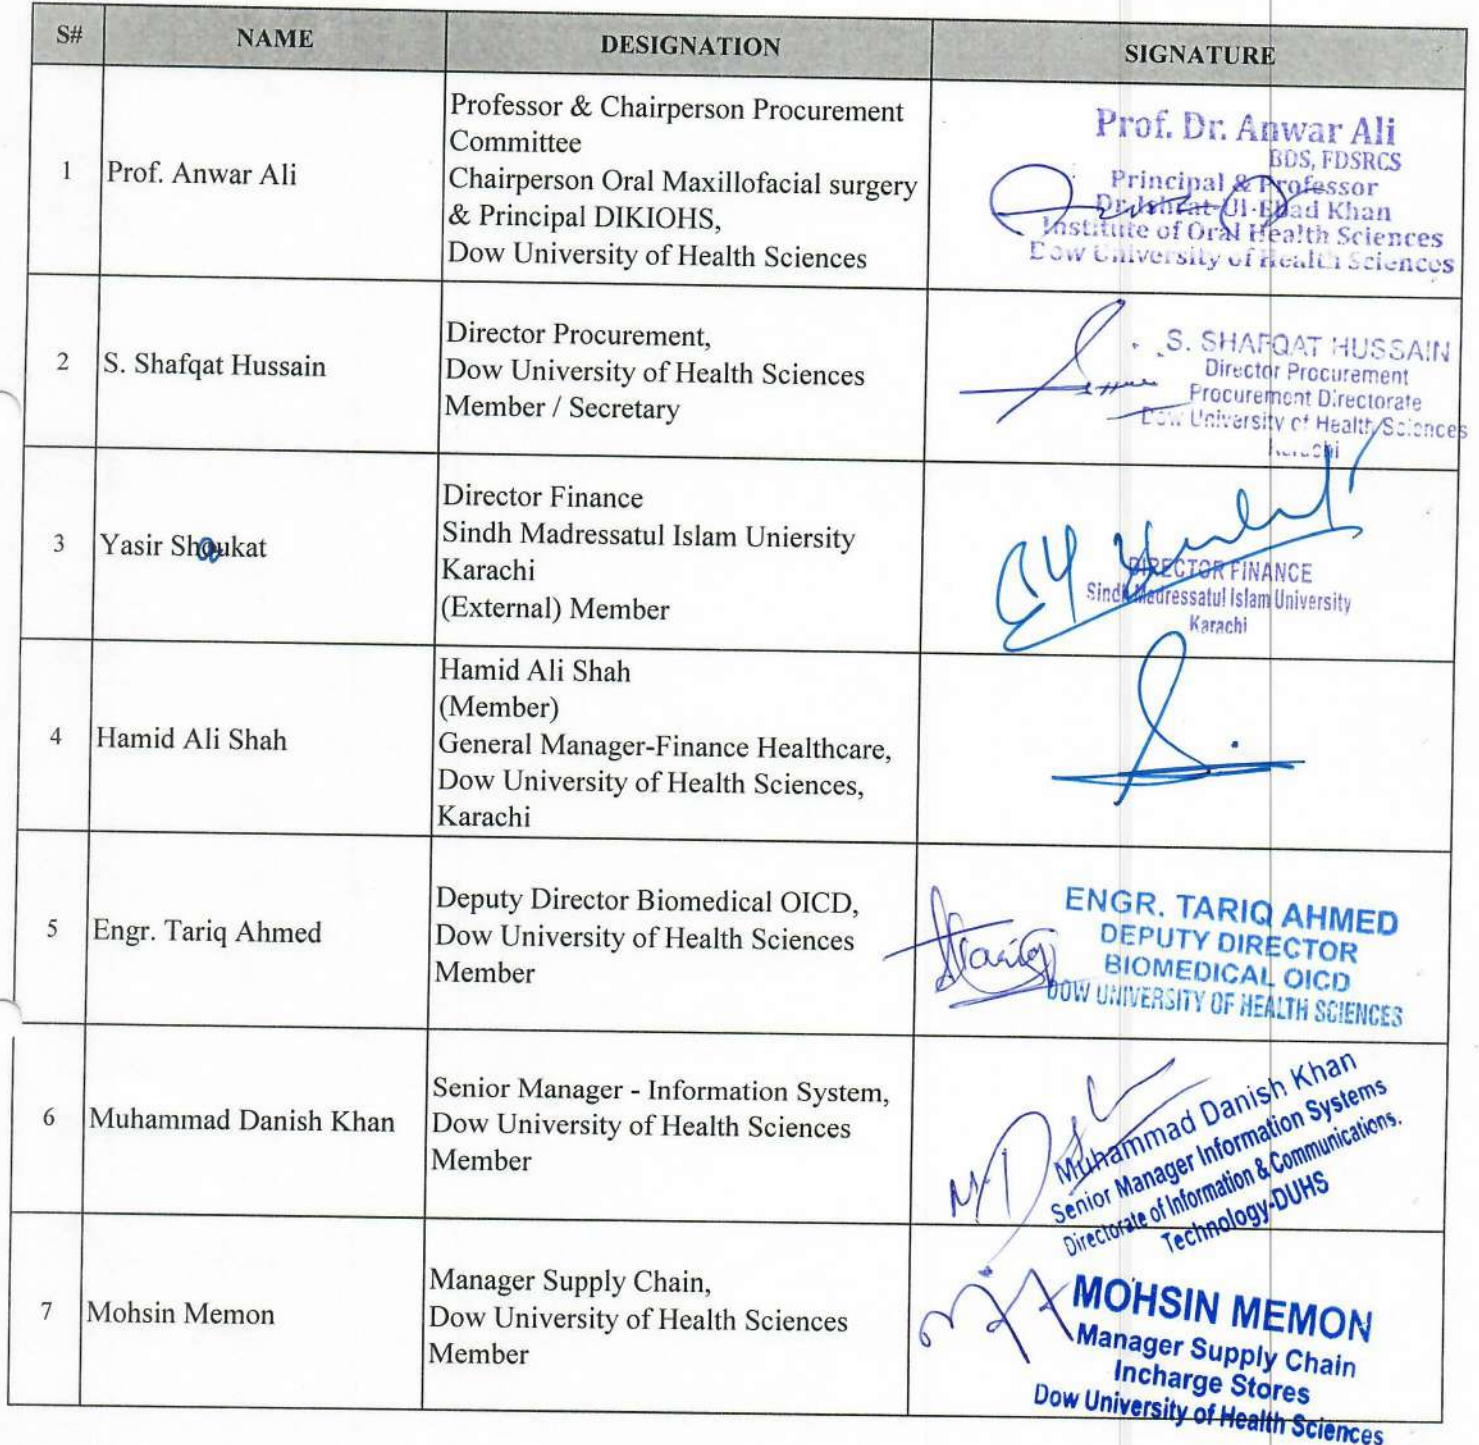 S# NAME DESIGNATION SIGNATURE
1 Prof. Anwar Ali
Professor & Chairperson Procurement
Committee
Chairperson Oral Maxillofacial surgery
& Principal DIKIOHS,
Dow University of Health Sciences
Prof. Dr. Anwar Ali
BDS, FDSRCS
Principal & Professor
Dr. Ishrat-Ul-Ebad Khan
Institute of Oral Health Sciences
Dow University of Health Sciences
2 S. Shafqat Hussain
Director Procurement,
Dow University of Health Sciences
Member / Secretary
S. SHAFQAT HUSSAIN
Director Procurement
Procurement Directorate
Dow University of Health Sciences
Karachi
3 Yasir Shaukat
Director Finance
Sindh Madressatul Islam Uniersity
Karachi
(External) Member
DIRECTOR FINANCE
Sindh Madressatul Islam University
Karachi
4 Hamid Ali Shah
Hamid Ali Shah
(Member)
General Manager-Finance Healthcare,
Dow University of Health Sciences,
Karachi
5 Engr. Tariq Ahmed
Deputy Director Biomedical OICD,
Dow University of Health Sciences
Member
Tariq
ENGR. TARIQ AHMED
DEPUTY DIRECTOR
BIOMEDICAL OICD
DOW UNIVERSITY OF HEALTH SCIENCES
6 Muhammad Danish Khan
Senior Manager - Information System,
Dow University of Health Sciences
Member
Muhammad Danish Khan
Senior Manager Information Systems
Directorate of Information & Communications.
Technology-DUHS
7 Mohsin Memon
Manager Supply Chain,
Dow University of Health Sciences
Member
MOHSIN MEMON
Manager Supply Chain
Incharge Stores
Dow University of Health Sciences